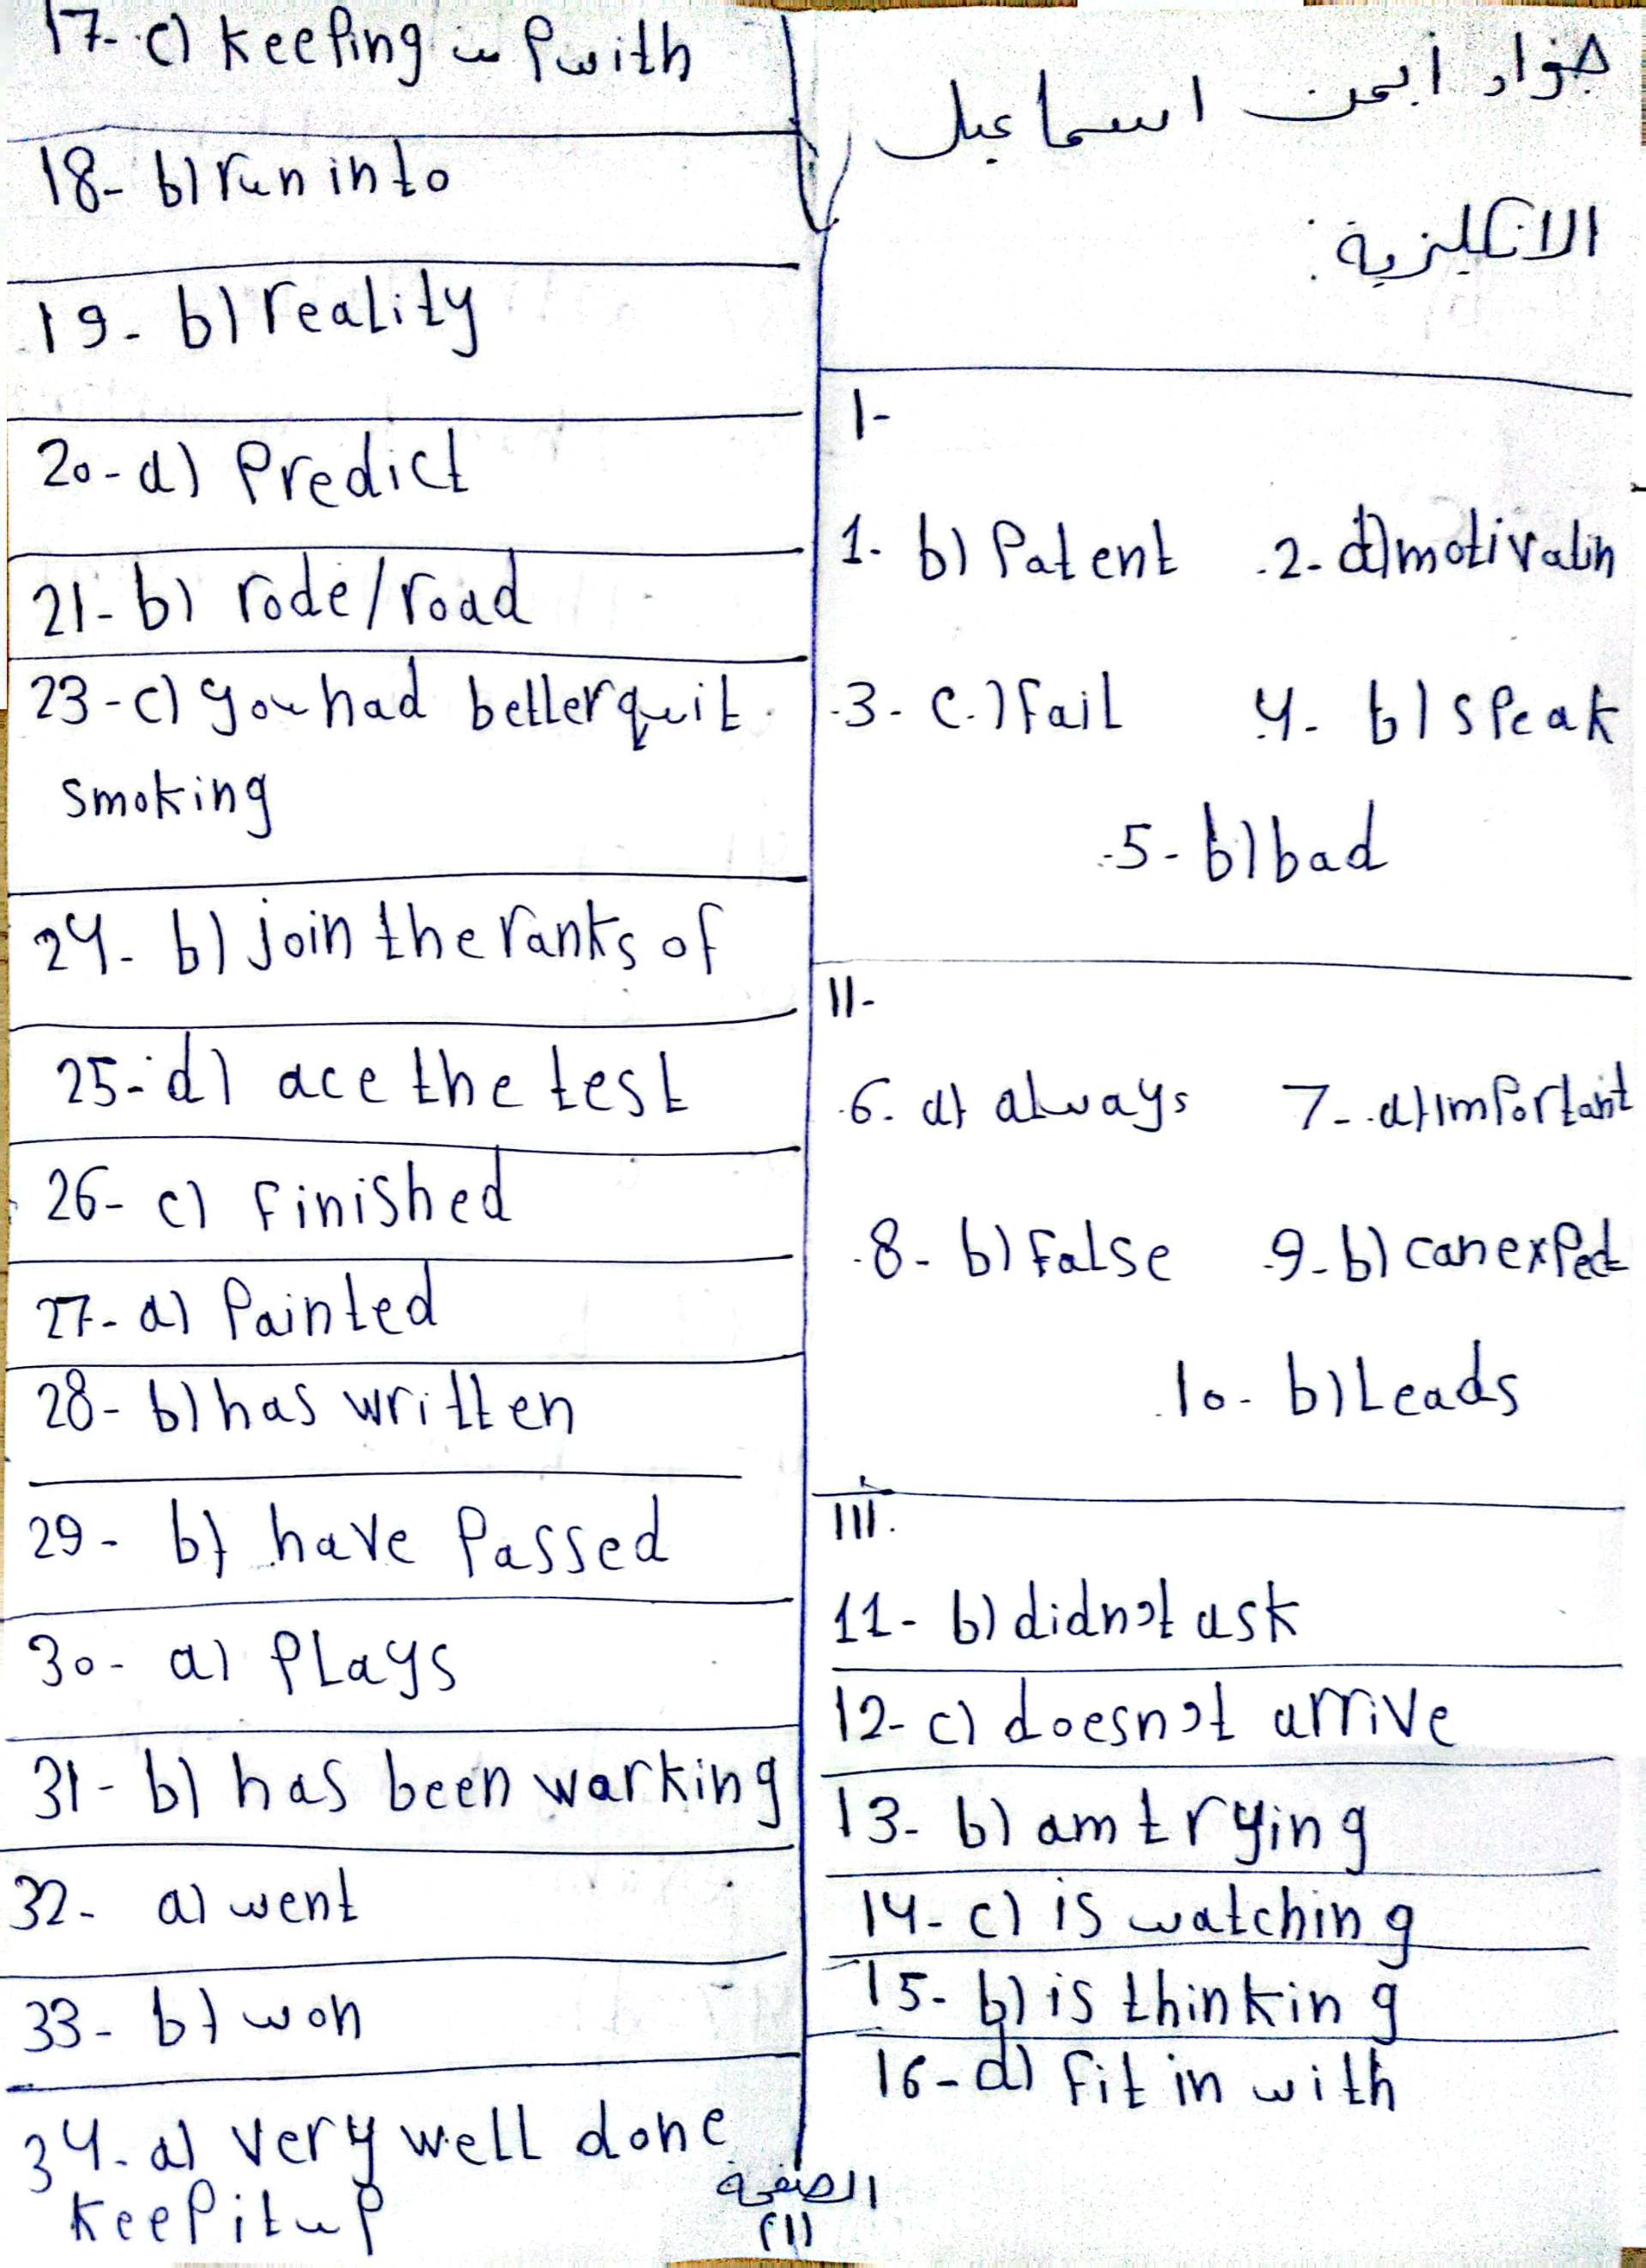 جواد أيمن اسماعيل
الانكليزية:
I-
1. b) Patent 2- d) motivatin
3- c) fail 4- b) speak
5- b) bad
II-
6. a) always 7- a) important
8- b) false 9- b) can expect
10- b) Leads
III.
11- b) didn't ask
12- c) doesn't arrive
13- b) am trying
14- c) is watching
15- b) is thinking
16- d) fit in with
17- c) keeping up with
18- b) run into
19- b) reality
20- a) Predict
21- b) rode/road
23- c) you had better quit
smoking
24- b) join the ranks of
25- d) ace the test
26- c) finished
27- a) Painted
28- b) has written
29- b) have Passed
30- a) PLays
31- b) has been warking
32- a) went
33- b) won
34- a) very well done
keep it up
الصفحة
(1)